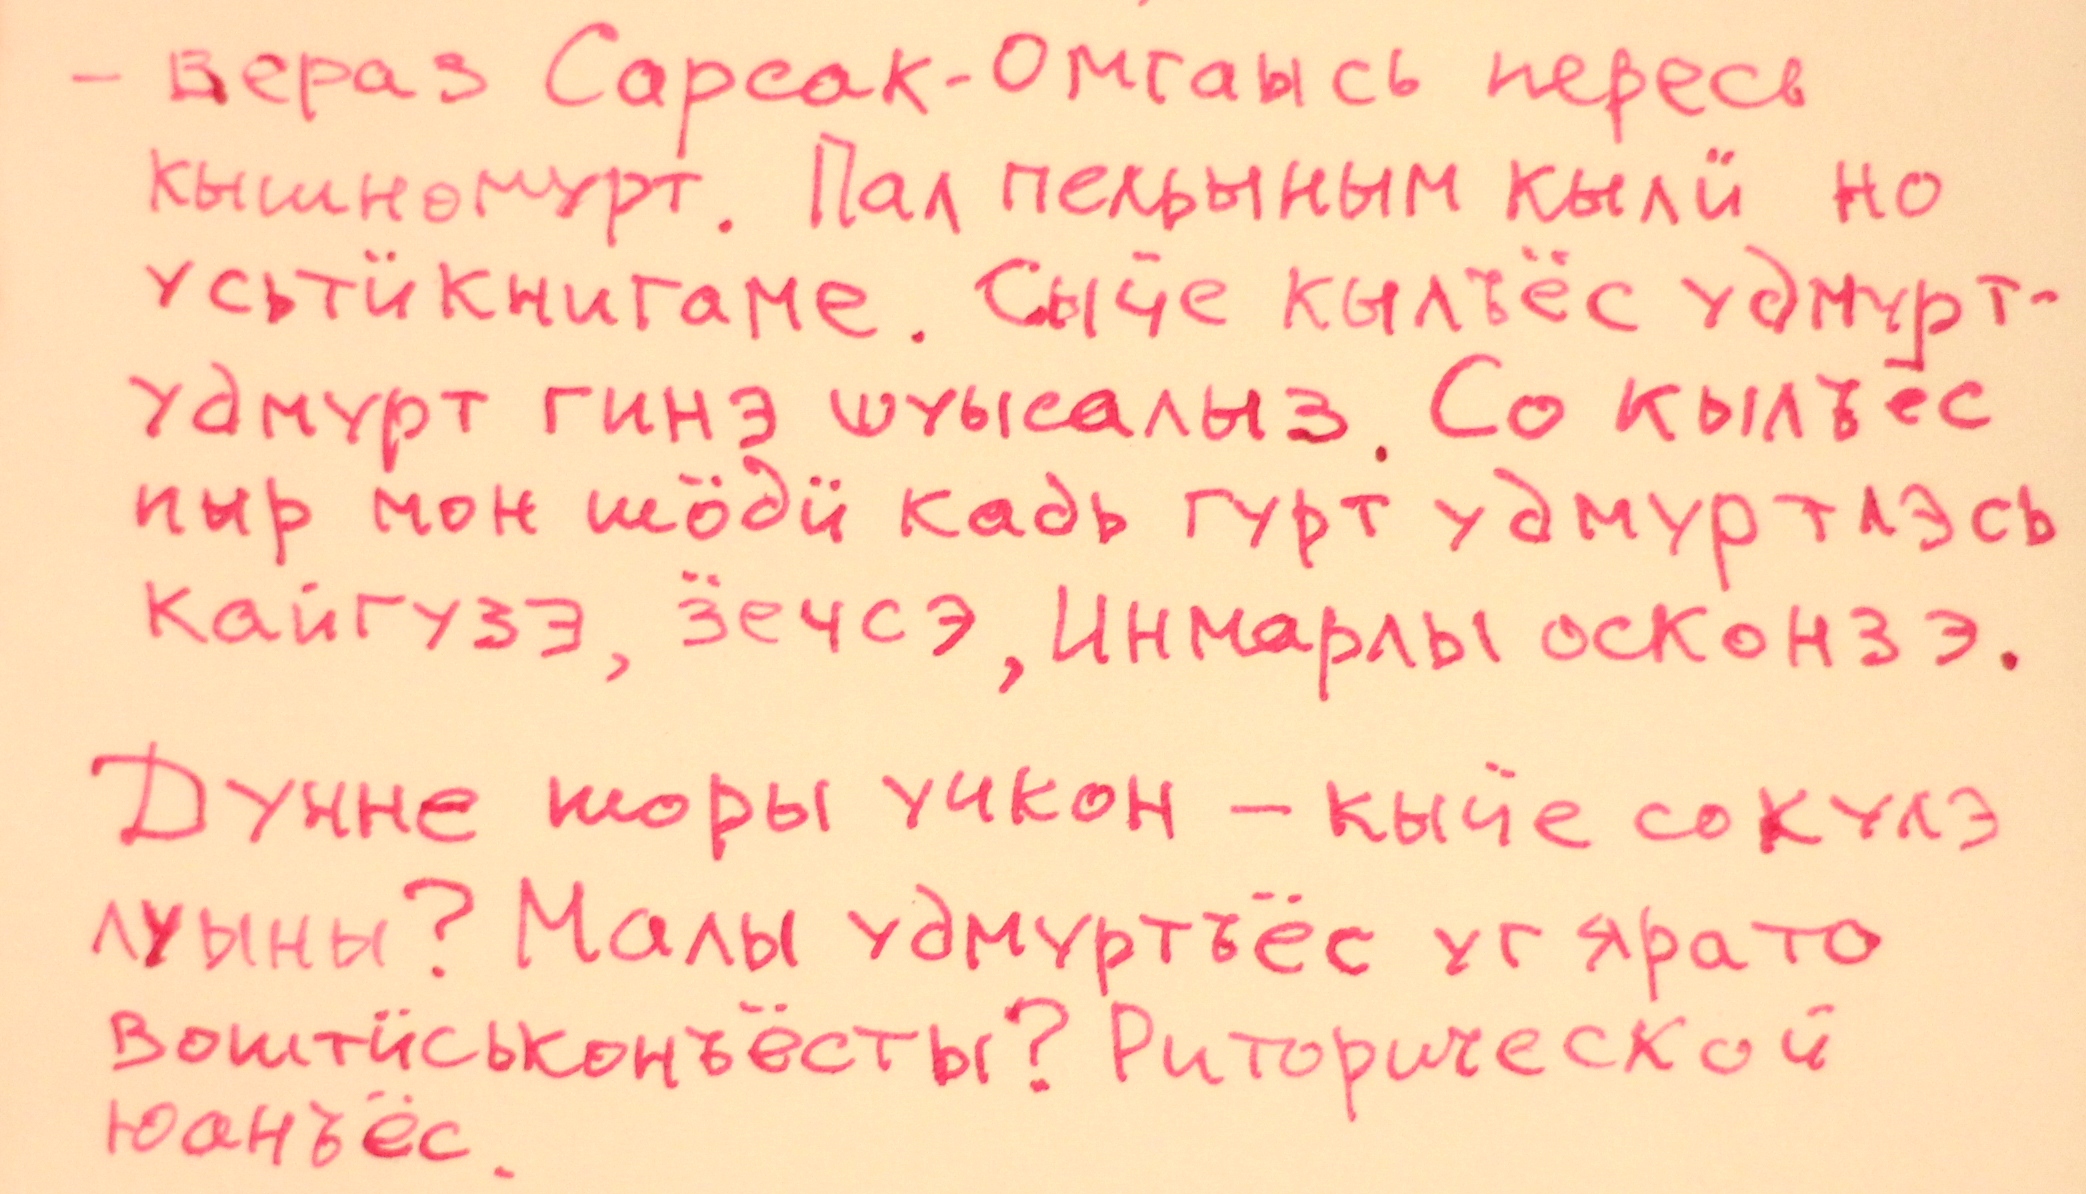 – вераз Сарсак-Омгаысь пересь
кышномурт. Пал пельыным кылӥ но
усьтӥ книгаме. Сыӵе кылъёс удмурт-
удмурт гинэ шуысалыз. Со кылъёс
пыр мон шӧдӥ кадь гурт удмуртлэсь
кайгузэ, ӟечсэ, Инмарлы осконзэ.
Дунне шоры учкон – кыӵе со кулэ
луыны? Малы удмуртъёс уг ярато
воштӥськонъёсты? Риторической
юанъёс.